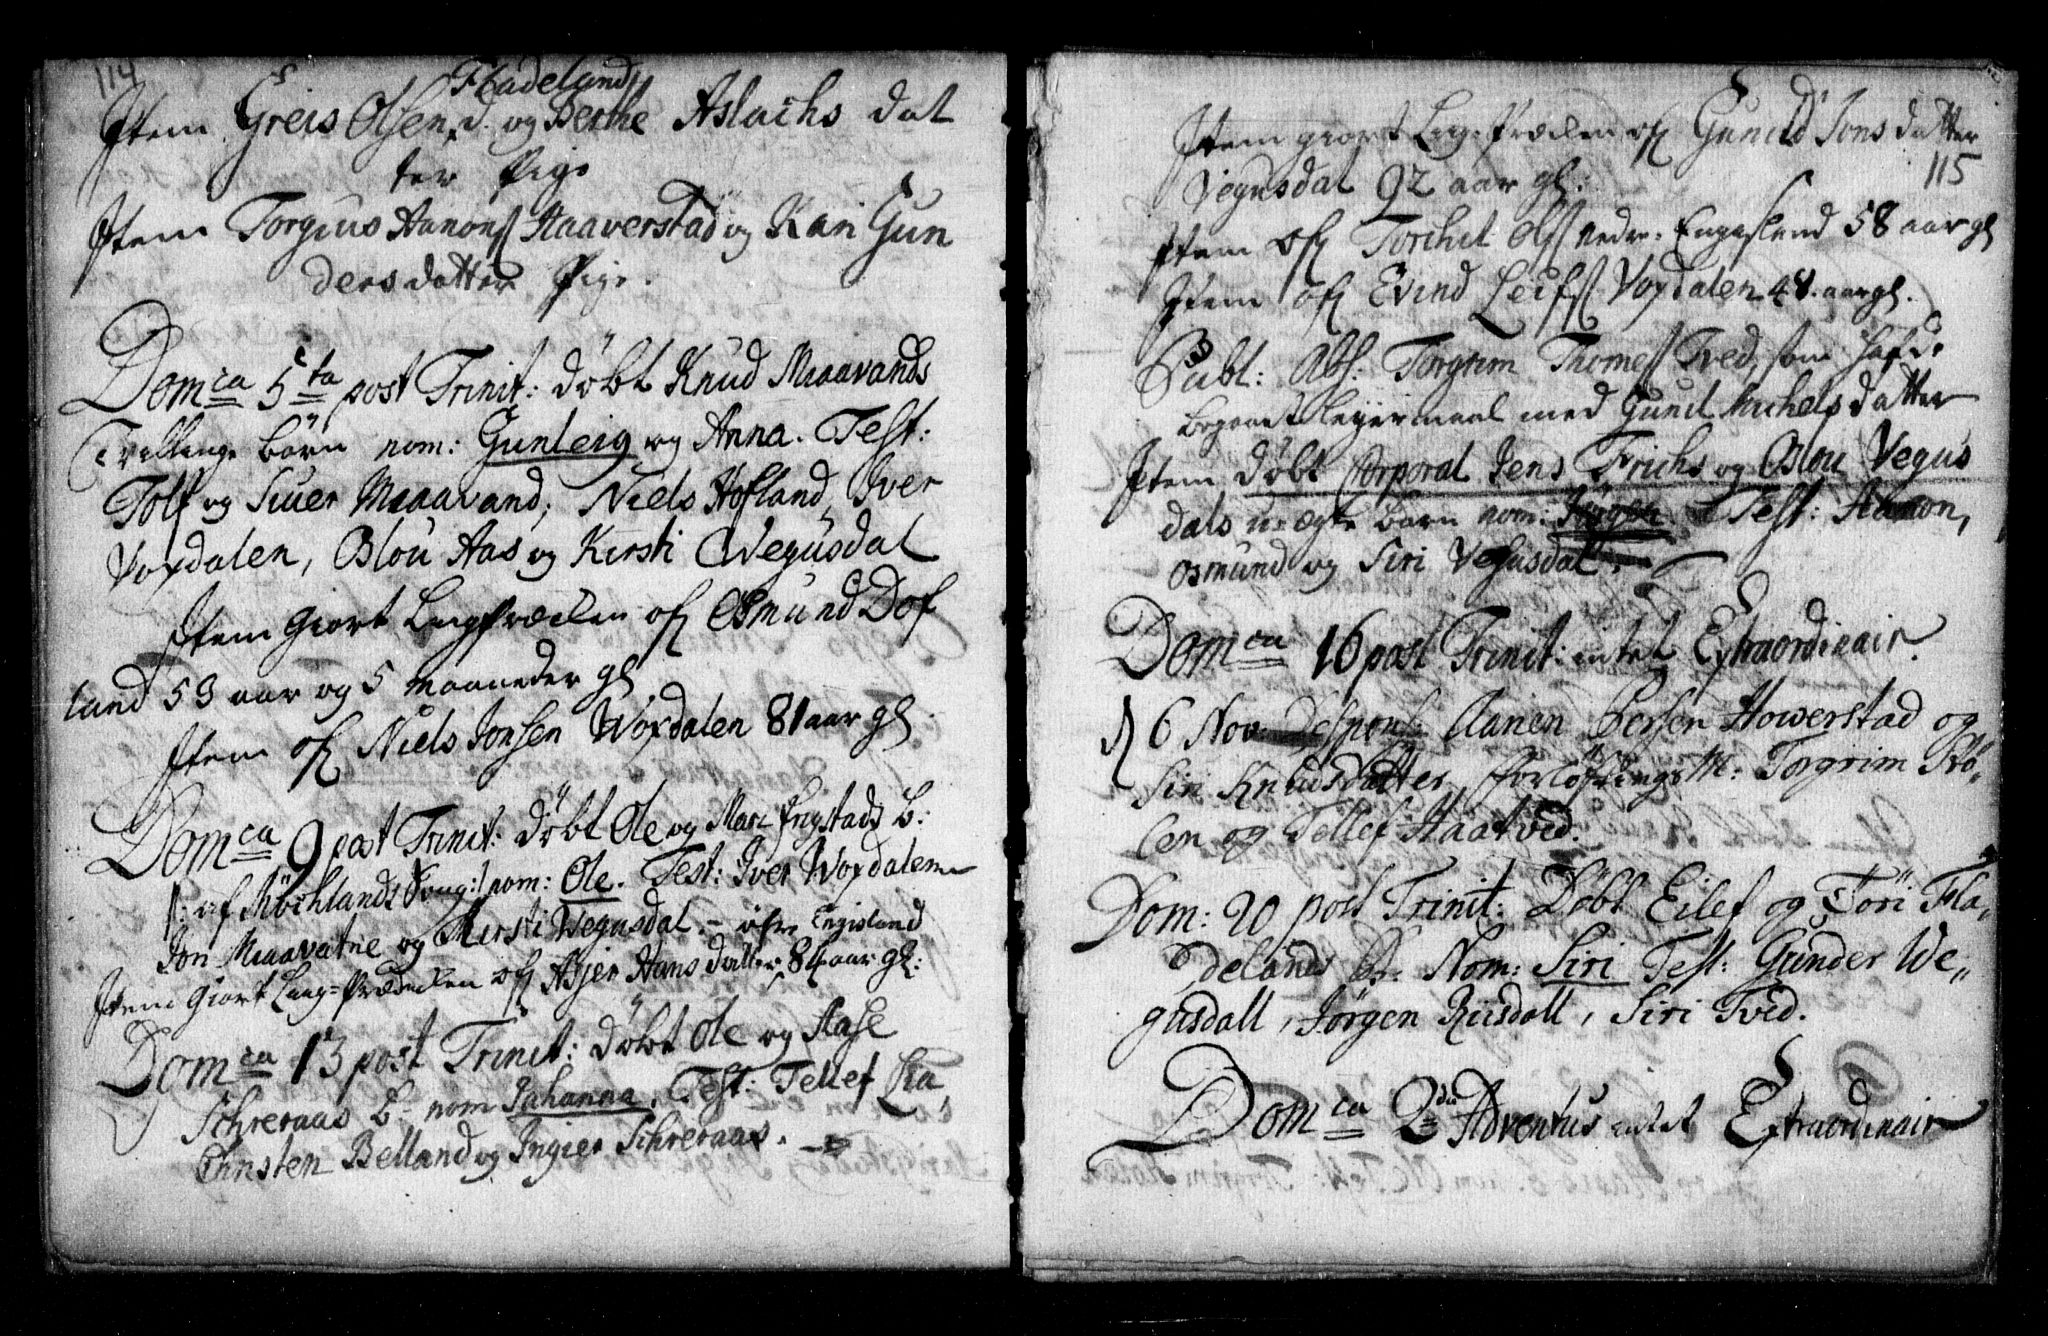 114
Fladeland
Item Greis Olsen og Berthe Aslachs dat
ter Pige
Item Torgius Aanons Haaverstad og Kari Gun
dersdatter Pige.
Domca 5ta post Trinit: døbt Knud Maavands
Tvillinge børn nom: Gunleig og Anna. Test:
Tolf og Siuer Maaavand, Niels Hofland, Iver
Voxdalen, Oslou Aas og Kirsti Wegusdal
Item giort Liigprædiken ofr Osmund Dof
land 53 aar og 5 maaneder gl.
Item ofr Niels Jonsen Woxdalen 81 aar gl.
Domca 9 post Trinit: døbt Ole og Mari Engstads b:
/: af Røchlands Song:/ nom: Ole. Test: Iver Woxdalen
Jon Maavatne og Kirsti Wegusdal. - øfre Engisland
Item giort Liig-Prædiken ofr Asjer Hansdatter 84 aar gl:
Domca 13 post Trinit: døbt Ole og Aase
Schreraas b- nom Johanna. Test: Tellef Lia,
Christen Belland og Ingier Schreraas.
Item giort Lig-Prædiken ofr Gunild Jons datter
115
Vegusdal 92 aar gl:
Item ofr Torchel Ols nedre Engesland 58 aar gl
Item ofr Evind Leifs Voxdalen 48. aar gl.
Publ: Abs: Torgrim Thomes Tved, som hafde
begaaet leyermaal med Gunil Michels datter
Item døbt Corporal Jens Frichs og Oslou Vegus
dals uægte barn nom: Jørgen. Test: Aanon,
Osmund og Siri Vegusdal.
Domca 16 post Trinit: intet Extraordinair.
d 6 Nov: Despons: Aanen Bersen Howerstad og
Siri Knudsdatter, Forløftnings M: Torgrim Rø-
len og Tellef Haatved.
Dom: 20 post Trinit: Døbt Eilef og Tøri Fla-
delands b: Nom: Siri Test: Gunder We-
gusdall, Jørgen Riisdall, Siri Tved.
Domca 2da Adventus intet Extraordinair